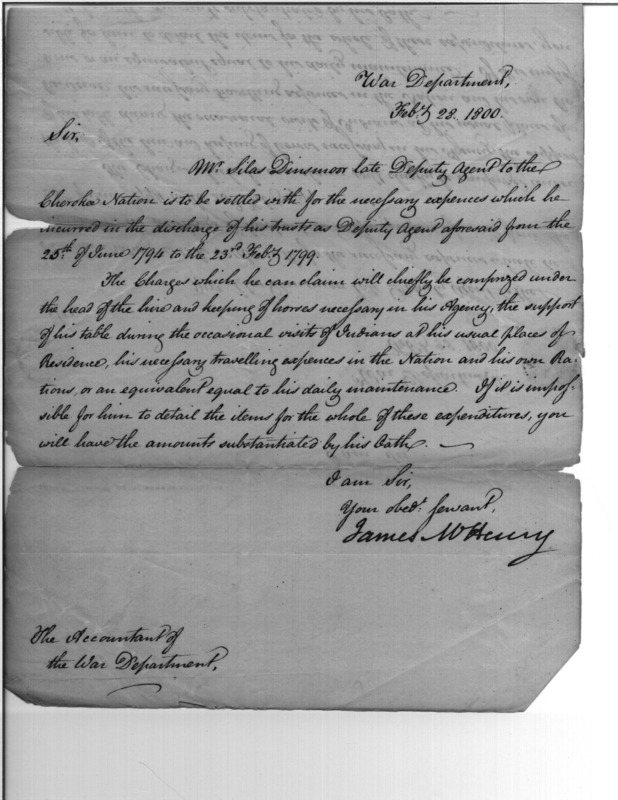 War Department,
Feb.y 28. 1800.
Sir,
Mr. Silas Dinsmoor late Deputy Agent to the
Cherokee Nation is to be settled with for the necessary expences which he
incurred in the discharge of his trusts as Deputy Agent aforesaid from the
25th. of June 1794 to the 23rd. Feb.y 1799.
The Charges which he can claim will chiefly be comprized under
the head of the hire and keeping of horses necessary in his Agency, the support
of his table during the occasional visits of Indians at his usual places of
Residence, his necessary travelling expences in the Nation and his own Ra-
tions, or an equivalent equal to his daily maintenance. If it is impos-
sible for him to detail the items for the whole of these expenditures, you
will have the amounts substantiated by his Oath. —
I am Sir,
Your obedt. Servant,
James McHenry
The Accountant of
the War Department,